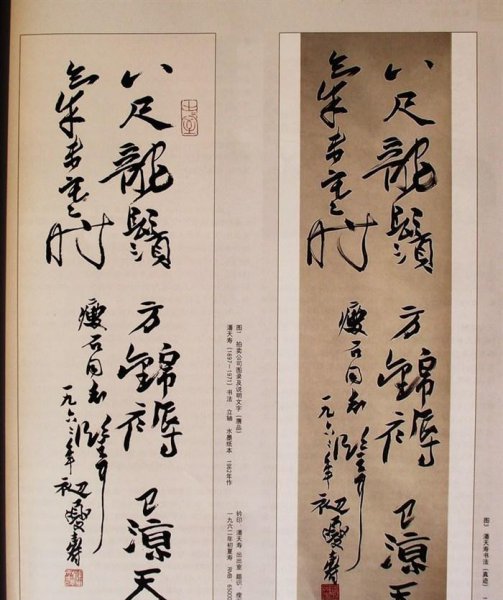 八尺龍鬚方錦褥已涼天
氣未寒時
瘦石同志
一九六二年初夏壽
图一 拍卖公司图录及说明文字（赝品）
潘天寿（1897-1971）书法 立轴 水墨纸本 1962年作
钤印：潘天寿
一九六二年初夏寿 RMB 65000
八尺龍鬚方錦褥已涼天
氣未寒時
瘦石同志
一九六二年初夏壽
潘天寿书法（真迹）